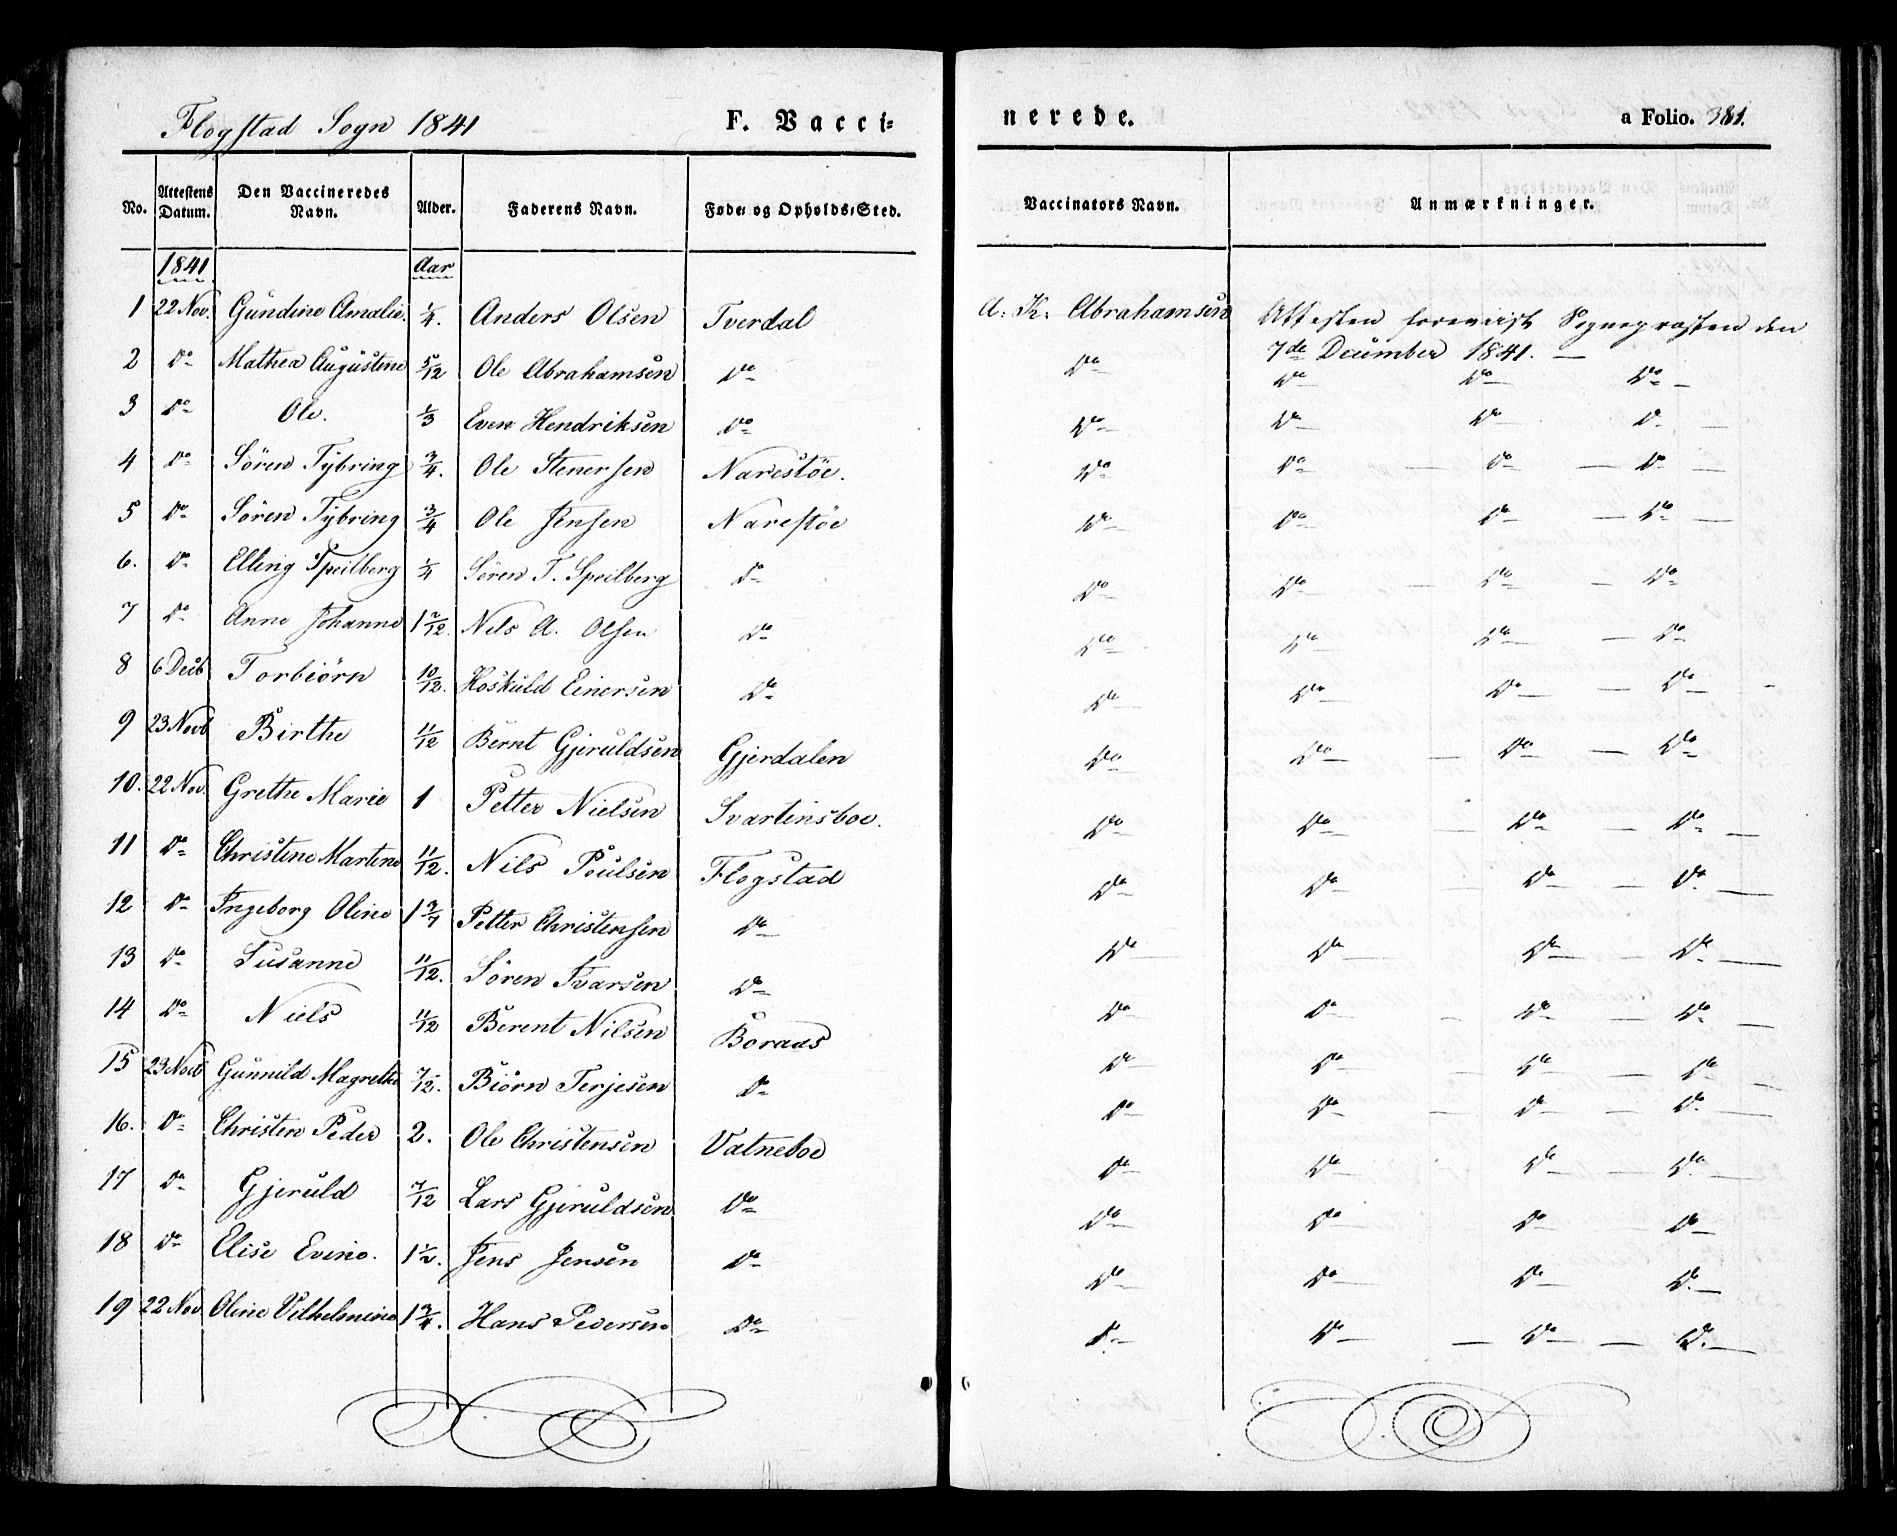 Flogstad Sogn 1841 F. Vacci=
nerede. a Folio. 381.
No. Attestens Datum. Den Vaccineredes Navn. Alder. Faderens Navn. Føde- og Opholds-Sted. Vaccinators Navn. Anmærkninger.
1841 Aar
1 22 Nov. Gundine Amalie. 1/4. Anders Olsen Tverdal A. K. Abrahamsen Attesten foreviist Sogneprosten den
7de December 1841. —
2 Do Mathea Augustine 5/12 Ole Abrahamsen Do Do Do Do Do
3 Do Ole. 1/3 Even Hendriksen Do Do Do Do D.
4 Do Sören Tybring 3/4. Ole Stenersen Narestöe. Do Do Do Do
5 Do Sören Tybring 3/4 Ole Jensen Narestöe Do Do Do Do
6. Do Elling Speilberg 1/4 Sören T. Speilberg Do Do Do Do Do
7 Do Anne Johanne 1 2/12. Nels A. Olsen Do Do Do Do Do
8 6 Decb Torbiörn 10/12. Hoskuld Einersen Do Do Do Do Do
9 23 Novb Birthe 11/12 Bernt Gjeruldsen Gjerdalen Do Do Do Do
10. 22 Nov. Grethe Marie 1 Petter Nielsen Svartinsboe. Do Do Do Do
11 Do Christine Martine 11/12. Nils Poulsen Flogstad Do Do Do Do
12 Do Ingeborg Oline 1 3/7 Petter Christensen Do Do Do Do Do
13 Do Susanne 11/12. Sören Ivarsen Do Do Do Do Do
14 Do Niels 11/12 Berent Nilsen Boraas Do Do Do Do
15 23 Novb Gunnild Magrethe 7/12. Biörn Terjesen Do Do Do Do Do
16. Do Christen Peder 2. Ole Christensen Vatneboe Do Do Do Do
17 Do Gjeruld 7/12 Lars Gjeruldsen Do Do Do Do Do
18 Do Elise Evine. 1 1/2. Jens Jensen Do Do Do Do Do
19 22 Nov. Oline Vilhelmine 1 3/4. Hans Pedersen Do Do Do Do Do